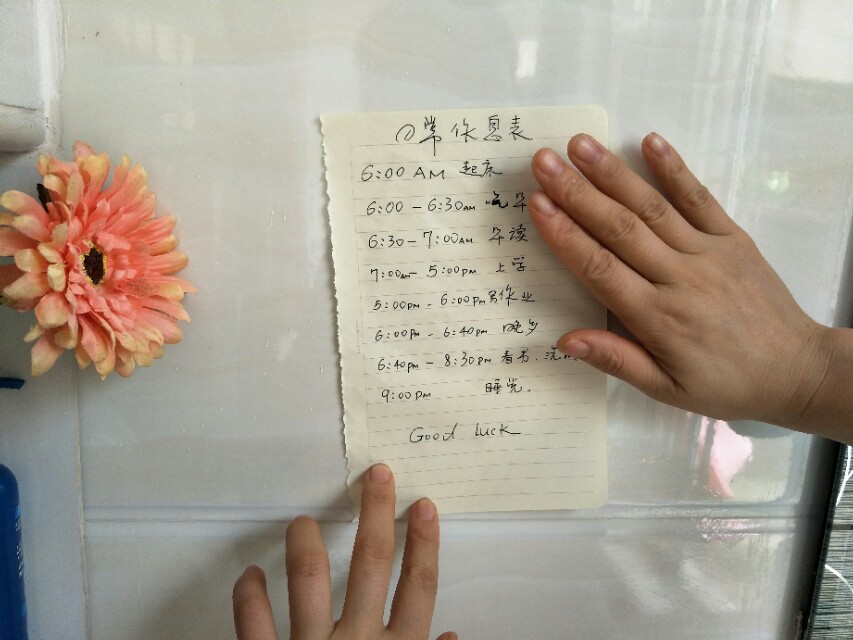 日常作息表
6:00 AM 起床
6:00 - 6:30AM 吃早
6:30 - 7:00AM 早读
7:00am - 5:00pm 上学
5:00pm - 6:00pm 写作业
6:00pm - 6:40pm 晚
6:40pm - 8:30pm 看书、洗
9:00pm 睡觉.
Good Luck